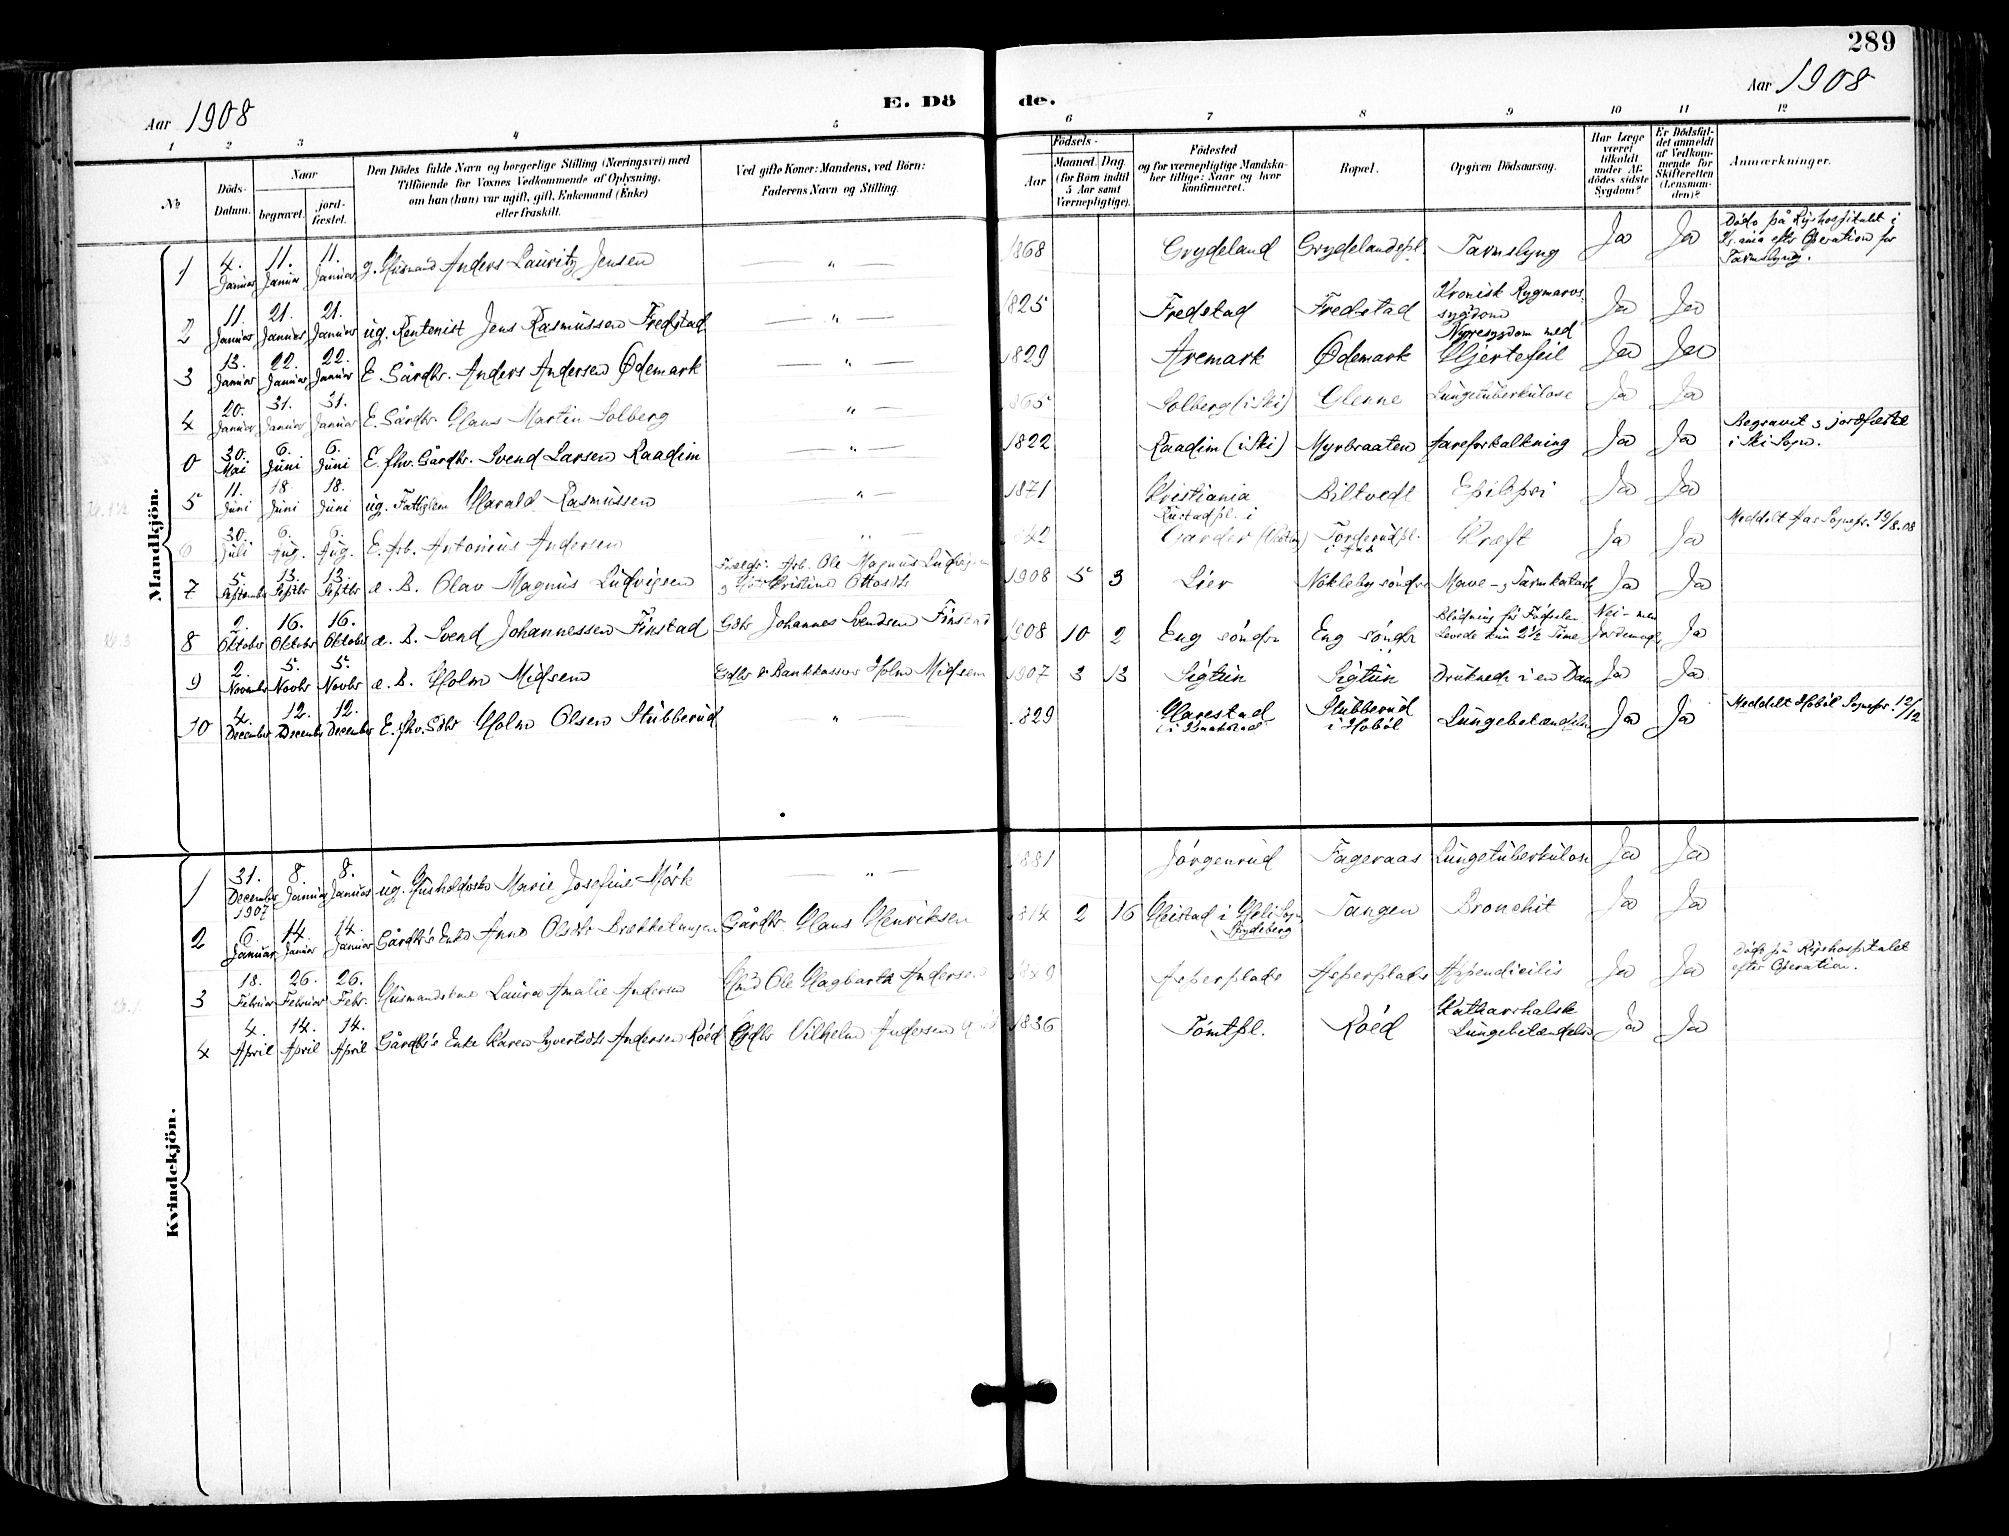 289
Aar 1908
E. Dö de.
Aar 1908
1 2 3 4 5 6 7 8 9 10 11 12
№
Döds-Datum.
Naar
begravet.
jord-fæstet.
Den Dödes fulde Navn og borgerlige Stilling (Næringsvei) med
Tilföiende for Voxnes Vedkommende af Oplysning,
om han (hun) var ugift, gift, Enkemand (Enke)
eller fraskilt.
Ved gifte Koner: Mandens, ved Börn:
Faderens Navn og Stilling.
Födsels-
Aar
Maaned. Dag.
(for Børn indtil
5 Aar samt
Værnepligtige).
Födested
og for værnepligtige Mandska-
ber tillige: Naar og hvor
konfirmeret.
Bopæl.
Opgiven Dödsaarsag.
Har Læge
været
tilkaldt
under Af-
dödes sidste
Sygdom?
Er Dödsfal-
det anmeldt
af Vedkom-
mende for
Skifteretten
(Lensman-
den)?
Anmærkninger.
Mandkjön.
1 4. Januar 11. Januar 11. Januar g. Husmand Anders Lauritz Jensen — " — 1868 Grydeland Grydelandspl. Tarmslyng Ja Ja Døde på Rijshospitalet i Kr.ania efter Operation for Tarmslyng.
2 11. Januar 21. Januar 21. Januar ug. Rentenist Jens Rasmussen Fredstad — " — 1825 Fredstad Fredstad Kronisk Rygmarvs-sygdom Ja Ja
3 13. Januar 22. Januar 22. Januar E. Gårdbr. Anders Andersen Ødemark — " — 1829 Aremark Ødemark Nyresygdom med Hjertefeil Ja Ja
4 20. Januar 31. Januar 31. Januar E. Gårdbr. Hans Martin Solberg — " — 1865 Solberg (i Ski) Glenne Lungetuberkulose Ja Ja
0 30. Mai 6. Juni 6. Juni E. fhv. Gårdbr. Svend Larsen Raadim — " — 1822 Raadim (i Ski) Myrbraaten Åreforkalkning Ja Ja Begravet & jordfæstet i Ski Sogn.
5 11. Juni 18. Juni 18. Juni ug. Fattiglem Harald Rasmussen — " — 1871 Kristiania Biltvedt Epilepsi Ja Ja
6 30. Juli 6. Aug. 6. Aug. E. Arb. Antonius Andersen — " — 1842 Rustadpl. i Garder Torderudpl. i Aas Kræft Ja Ja Meddelt Aas Sognepr. 19/8.08
7 5. September 13. Septbr 13. Septbr æ. B. Olav Magnus Ludvigsen Forældr: Arb. Ole Magnus Ludvigsen & Hstr Kristine Ottosdtr 1908 5 3 Lier Nøkleby søndre Mave- & Tarmkatarh Ja Ja
8 2. Oktober 16. Oktober 16. Oktober æ. B. Svend Johannessen Finstad Gbr Johannes Svendsen Finstad 1908 10 2 Eng søndre Eng søndr Blødning før Fødselen Levede kun 2½ Time Nei - men Jordemoder Ja
9 2. November 5. Novbr 5. Novbr æ. B. Holm Midsem Gdbr & Bankkasser Holm Midsem 1907 3 13 Sigtun Sigtun Druknede i en Dam Ja Ja
10 4. December 12. December 12. December E. fhv. Gbr Holm Olsen Stubberud — " — 1829 Harestad i Kraakstad Stubberud i Hobøl Lungebetændelse Ja Ja Meddelt Hobøl Sognepr. 12/12
Kvindekjön.
1 31. December 1907 8. Januar 8. Januar ug. Husholdrske Marie Josefine Mørk — " — 1881 Jørgenrud Fageraas Lungetuberkulose Ja Ja
2 6. Januar 14. Januar 14. Januar Gårdbr's Enke Anne Olsdtr Brækketangen Gårdbr Hans Henriksen 1814 2 16 Heistad i Heli Sogn Spydeberg Tangen Bronchit Ja Ja
3 18. Februar 26. Februar 26. Febr. Husmandskone Laura Amalie Andersen Hmd Ole Hagbarth Andersen Asperplads Asperplads Appendicitis Ja Ja Døde på Rijshospitalet efter Operation.
4 4. April 14. April 14. April Gårdbr's Enke Karen Syvertsdtr Andersen Roéd Gdbr Vilhelm Andersen 1836 Tomtpl. Roéd Katharrhalsk Lungebetændelse Ja Ja